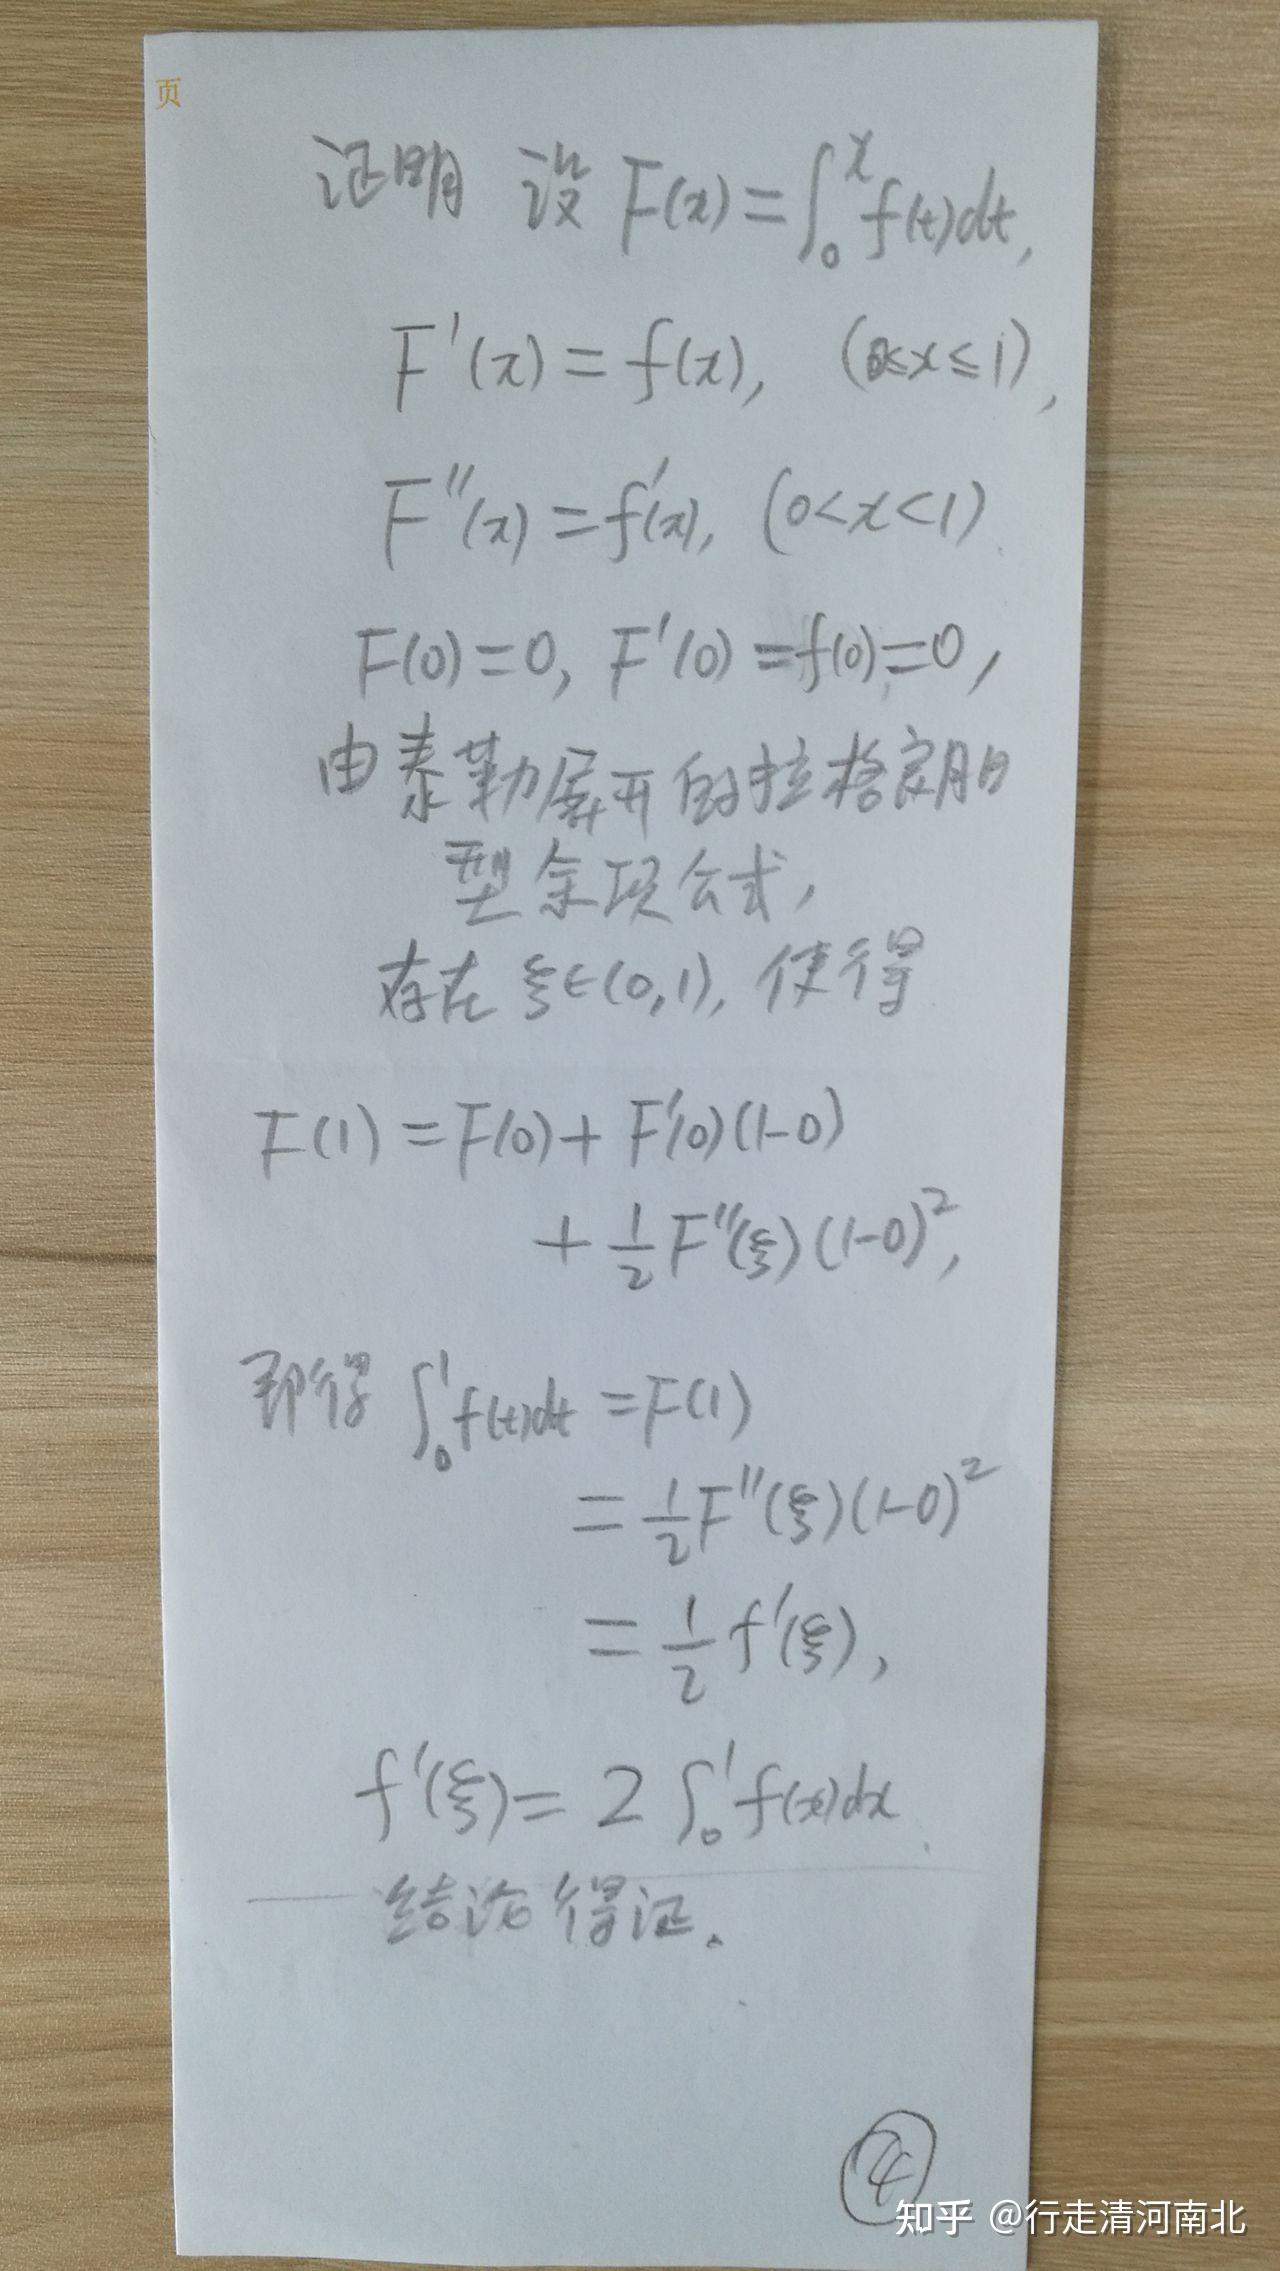 页
证明 设 F(x)=∫₀ˣf(t)dt,
F'(x)=f(x), (0≤x≤1),
F''(x)=f'(x), (0<x<1).
F(0)=0, F'(0)=f(0)=0,
由泰勒展开的拉格朗日
型余项公式,
存在 ξ∈(0,1), 使得
F(1)=F(0)+F'(0)(1-0)
+½F''(ξ)(1-0)²,
即得 ∫₀¹f(t)dt=F(1)
=½F''(ξ)(1-0)²
=½f'(ξ),
f'(ξ)=2∫₀¹f(x)dx.
结论得证.
④
知乎 @行走清河南北